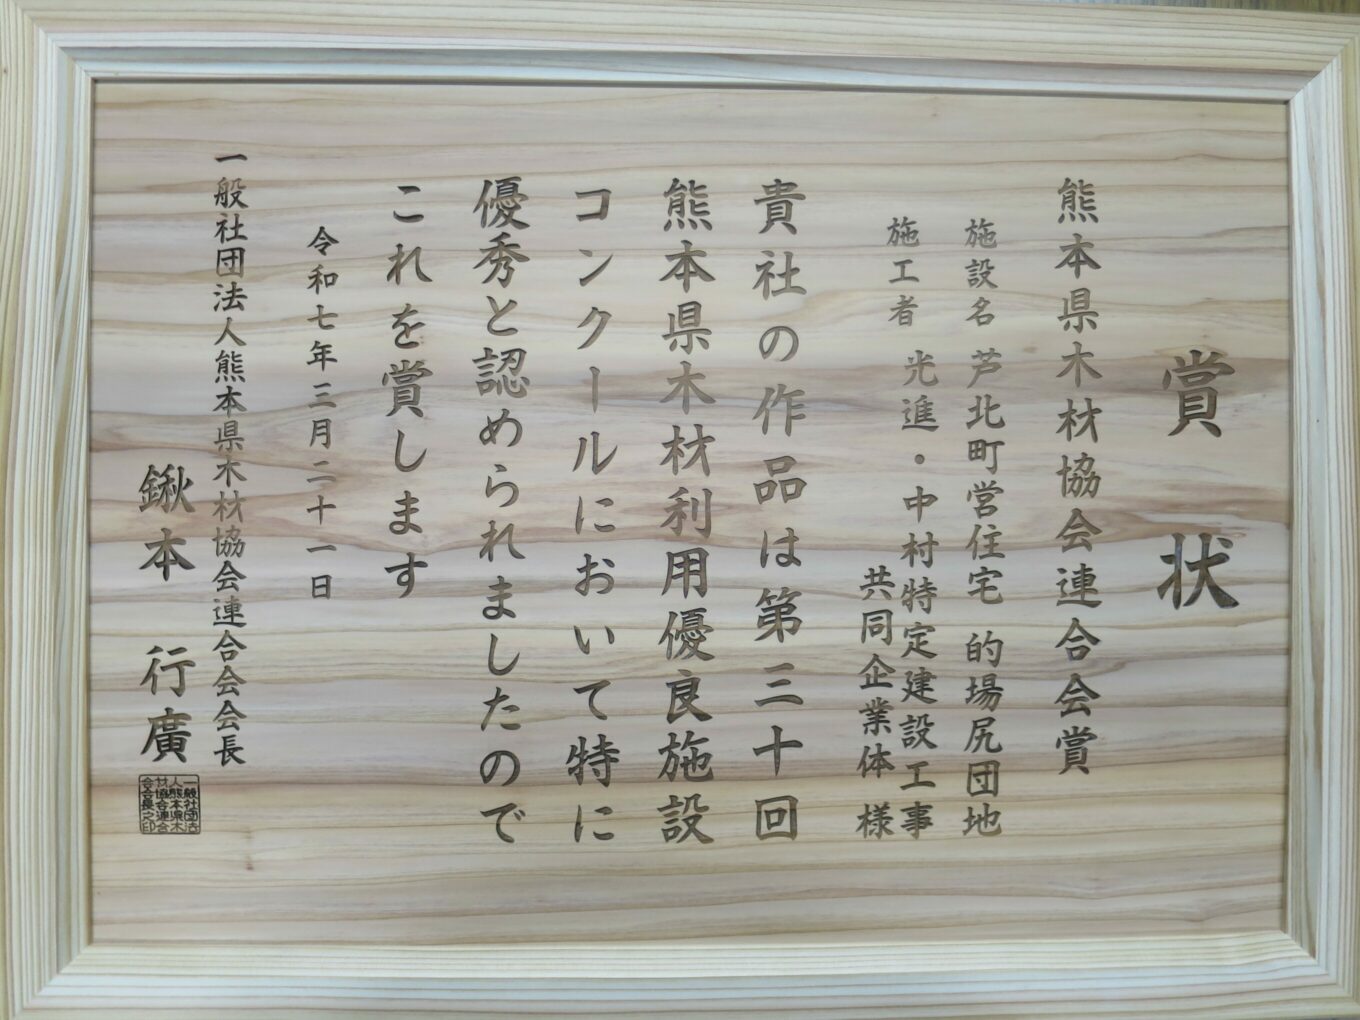 賞状
熊本県木材協会連合会賞
施設名 芦北町営住宅 的場尻団地
施工者 光進・中村特定建設工事
共同企業体 様
貴社の作品は第三十回
熊本県木材利用優良施設
コンクールにおいて特に
優秀と認められましたので
これを賞します
令和七年三月二十一日
一般社団法人熊本県木材協会連合会会長
鍬本 行廣
一般社団法
人熊本県木
材協会連合
会会長之印